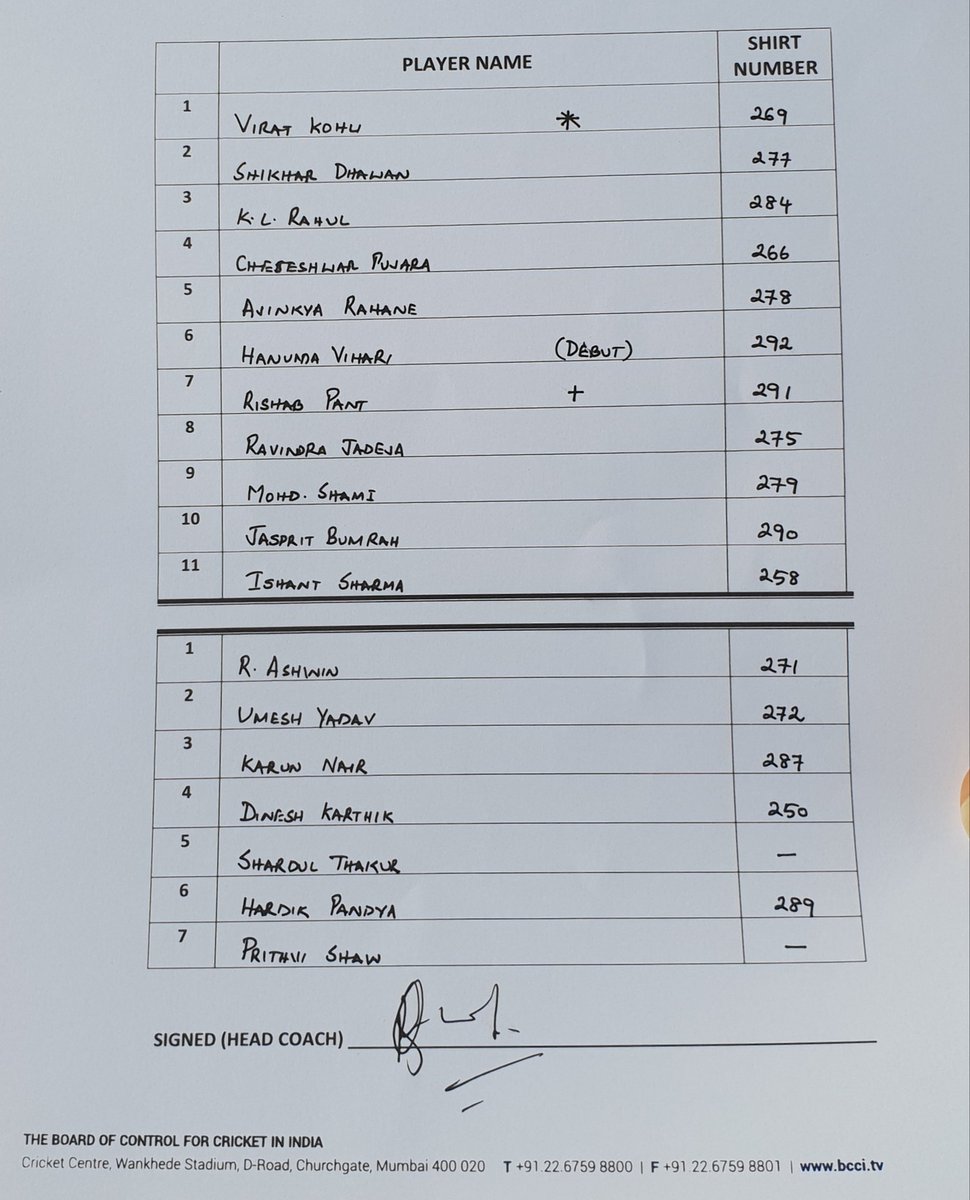 PLAYER NAME SHIRT NUMBER
1 VIRAT KOHLI * 269
2 SHIKHAR DHAWAN 277
3 K.L. RAHUL 284
4 CHETESHWAR PUJARA 266
5 AJINKYA RAHANE 278
6 HANUMA VIHARI (DEBUT) 292
7 RISHAB PANT + 291
8 RAVINDRA JADEJA 275
9 MOHD. SHAMI 279
10 JASPRIT BUMRAH 290
11 ISHANT SHARMA 258
1 R. ASHWIN 271
2 UMESH YADAV 272
3 KARUN NAIR 287
4 DINESH KARTHIK 250
5 SHARDUL THAKUR —
6 HARDIK PANDYA 289
7 PRITHVI SHAW —
SIGNED (HEAD COACH)
THE BOARD OF CONTROL FOR CRICKET IN INDIA
Cricket Centre, Wankhede Stadium, D-Road, Churchgate, Mumbai 400 020 T +91.22.6759 8800 | F +91.22.6759 8801 | www.bcci.tv